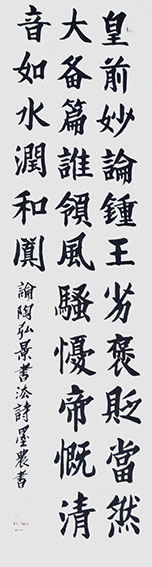 皇前妙論鍾王劣褒貶當然
大备篇誰領風騷懮帝慨清
音如水潤和闐
論陶弘景書法詩墨農書